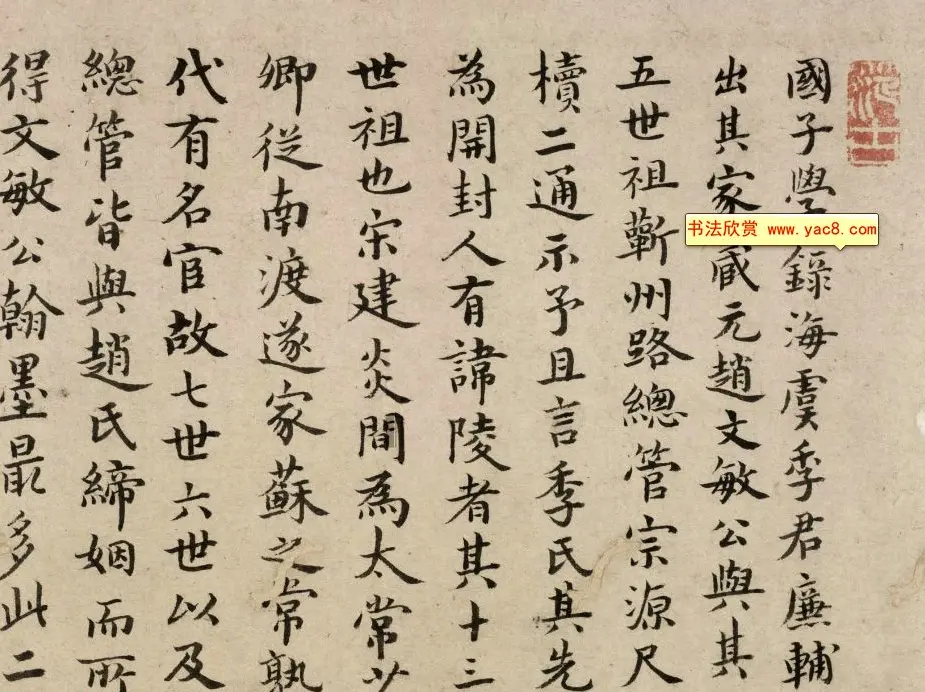 國子學錄海虞季君廉輔
出其家藏元趙文敏公與其
五世祖蘄州路總管宗源尺
牘二通示予且言季氏其先
為開封人有諱陵者其十三
世祖也宋建炎間為太常少
卿從南渡遂家蘇之常熟
代有名官故七世六世以及
總管皆與趙氏締姻而所
得文敏公翰墨最多此二
书法欣赏 www.yac8.com